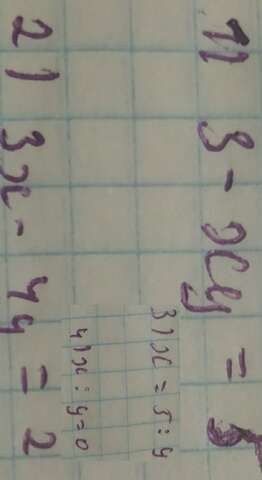 1) 8 - xy = 5
2) 3x - 4y = 2
3) x = 5 : y
4) x : y = 0